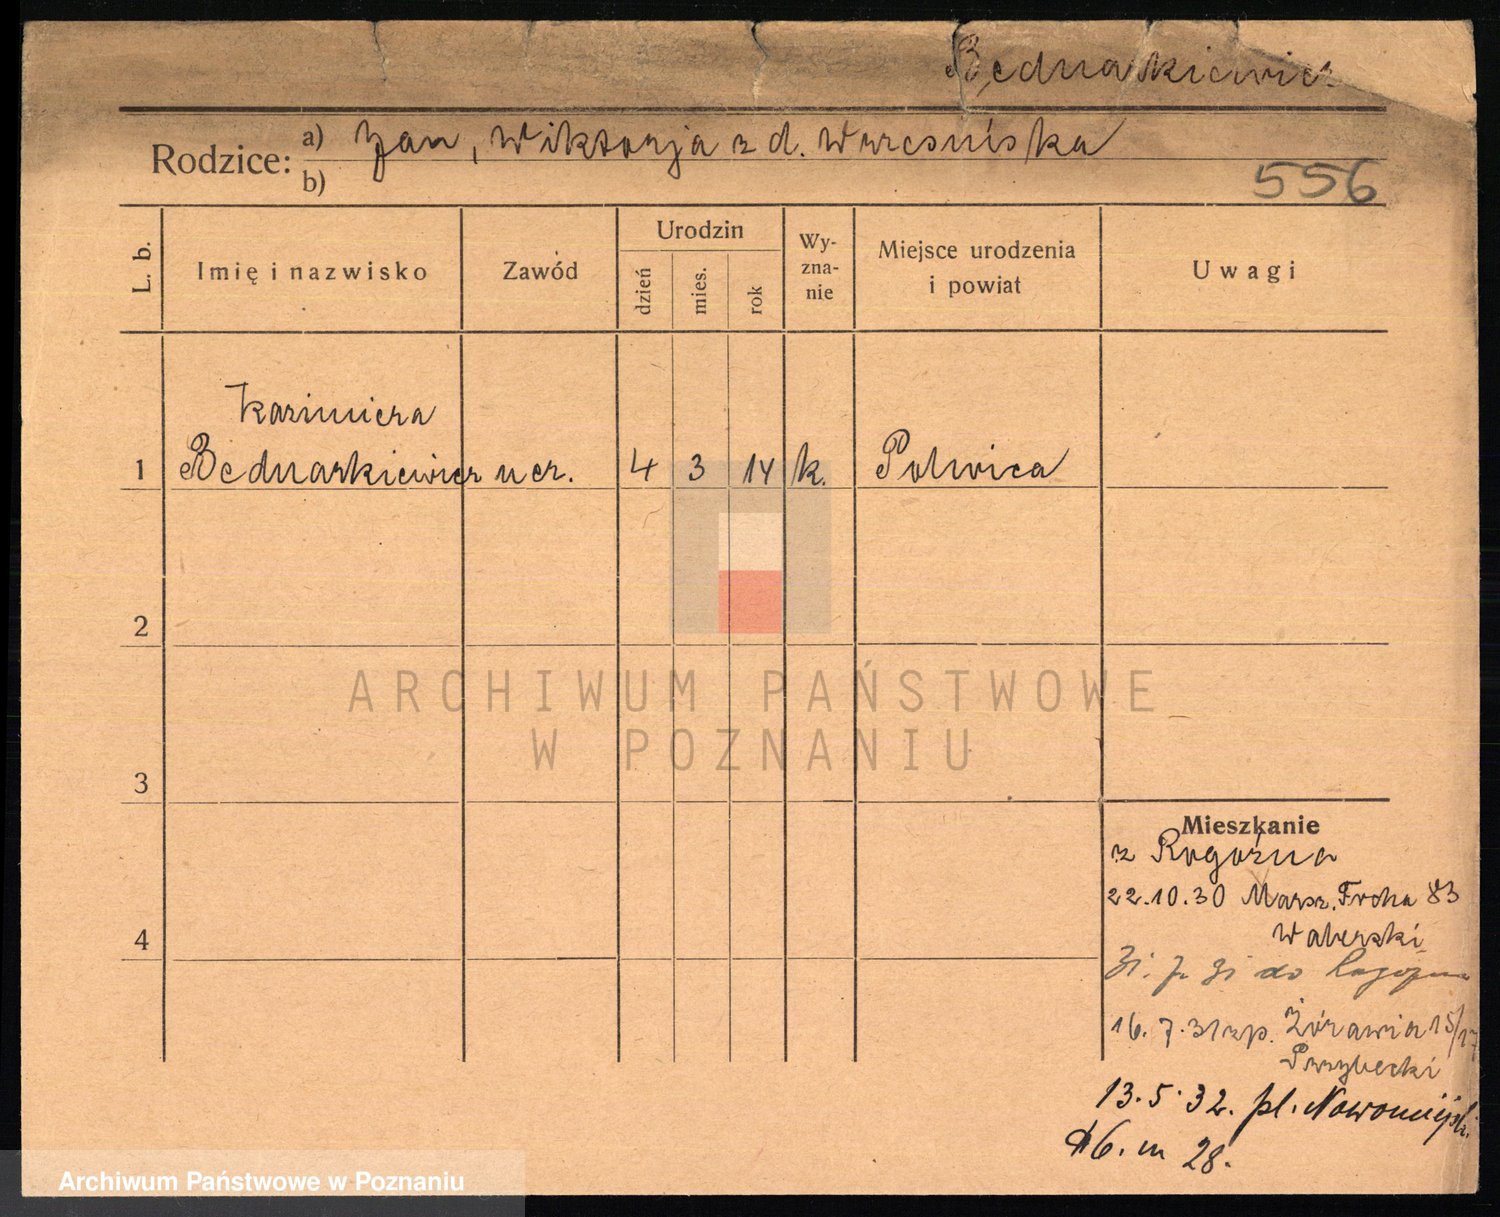 Bednarkiewicz
Rodzice: a) Jan, Wiktorja z d. Wrzesińska
b)
556
L. b. Imię i nazwisko Zawód Urodzin dzień mies. rok Wy-zna-nie Miejsce urodzenia i powiat Uwagi
Kazimiera
1 Bednarkiewicz ucz. 4 3 14 k. Polwica
2
ARCHIWUM PAŃSTWOWE
W POZNANIU
3
Mieszkanie
z Rogoźna
22.10.30 Marsz. Focha 83
Waberski
4
31. do Rogoźna
16.7.31 zp. Żórawia 15/17
Przybecki
13.5.32. pl. Nowomiejski
6. m 28.
Archiwum Państwowe w Poznaniu